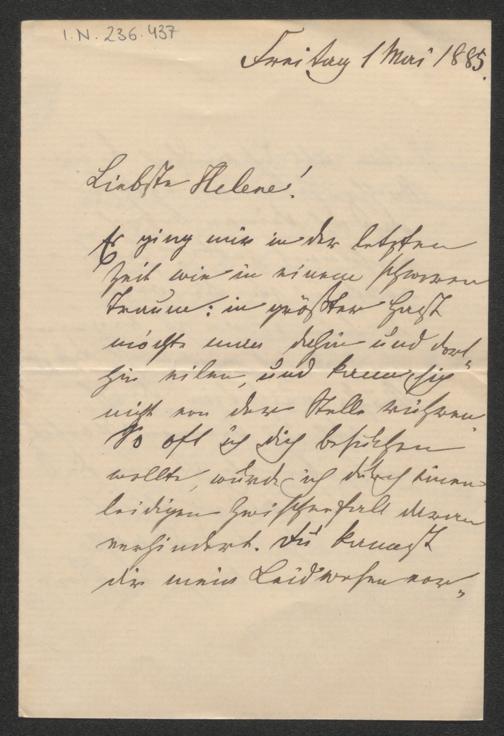 I.N. 236.437
Freitag 1 Mai 1885.
Liebste Helene!
Es ging mir in der letzten
Zeit wie in einem schweren
Traum: in größter Hast
möchte man dahin und dort„
hin eilen, und kann sich
nicht von der Stelle rühren
So oft ich dich besuchen
wollte, wurde ich durch einen
leidigen Zwischenfall daran
verhindert. Du kannst
dir mein Leidwesen vor„